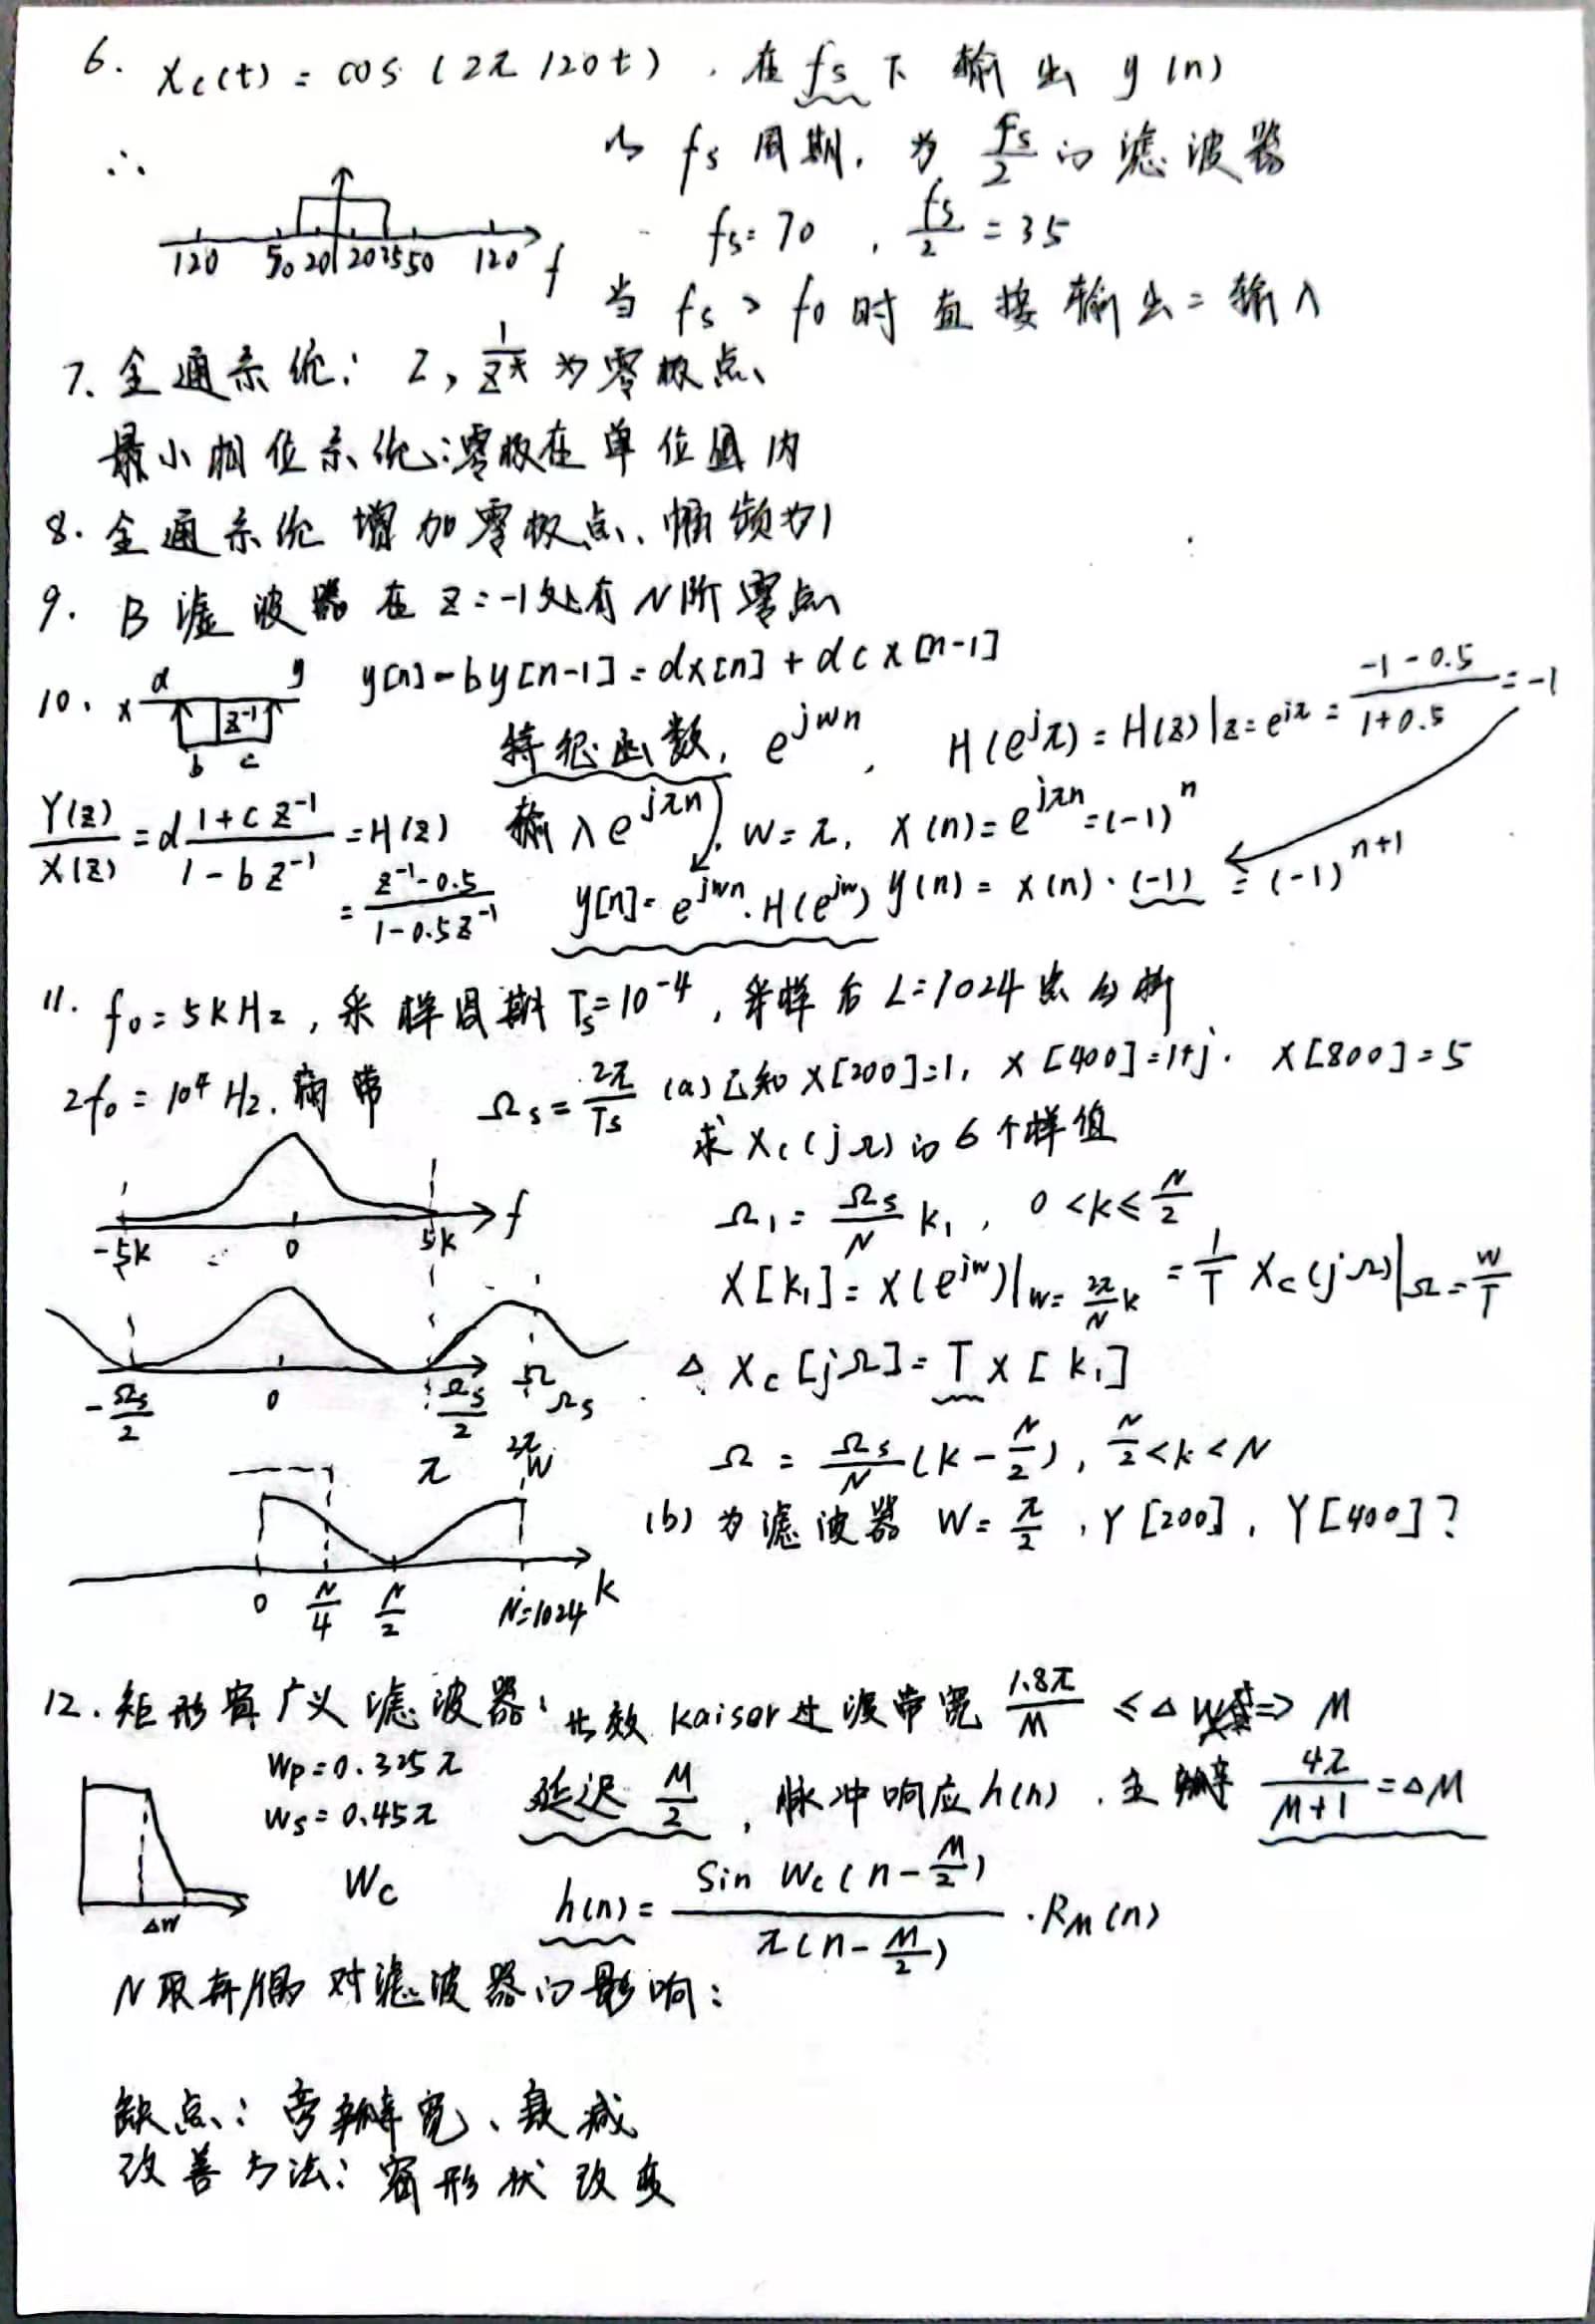 6. Xc(t) = cos(2π120t). 在 fs 下 输出 y(n)
∴ 以 fs 周期, 为 fs/2 的 滤波器
120 50 20 20 35 50 120 f
fs = 70 , fs/2 = 35
当 fs > f0 时 直接 输出 = 输入
7. 全通系统: Z, 1/Z* 为零极点
最小相位系统: 零极在单位圆内
8. 全通系统 增加零极点、幅频为1
9. B滤波器 在 z=-1处有N阶零点
10. x d y z⁻¹ b c y[n]-by[n-1]=dx[n]+dcx[n-1]
特征函数, e^{jwn}, H(e^{jπ}) = H(z)|z=e^{jπ} = (-1-0.5)/(1+0.5) = -1
Y(z)/X(z) = d (1+cz⁻¹)/(1-bz⁻¹) = H(z) 输入 e^{jπn}, w=π, x(n)=e^{jπn}=(-1)^n
= (z⁻¹-0.5)/(1-0.5z⁻¹) y[n]=e^{jwn}·H(e^{jw}) y(n) = x(n)·(-1) = (-1)^{n+1}
11. f0=5KHz, 采样周期 Ts=10⁻⁴, 采样后 L=1024点分析
2f0 = 10⁴Hz. 频带 Ωs = 2π/Ts (a) 已知 X[200]=1, X[400]=1+j. X[800]=5
求 Xc(jΩ) 的 6个样值
-5k 0 5k f
Ω₁ = Ωs/N k₁, 0<k≤N/2
X[k₁] = X(e^{jw})|w=2π/N k = 1/T Xc(jΩ)|Ω=w/T
-Ωs/2 0 Ωs/2 Ω Ωs
Xc[jΩ] = T X[k₁]
π 2π w
Ω = Ωs/N (k-N/2), N/2<k<N
(b) 为滤波器 W=π/2, Y[200], Y[400]?
0 N/4 N/2 N=1024 k
12. 矩形窗广义滤波器: 等效 Kaiser过渡带宽 1.8π/M ≤ Δw ⇒ M
Wp=0.325π
Ws=0.45π
延迟 M/2, 脉冲响应h(n). 主瓣 4π/(M+1) = ΔM
Δw
Wc h(n) = sin Wc(n-M/2) / π(n-M/2) · RM(n)
N取奇/偶 对滤波器的影响:
缺点: 旁瓣宽、衰减
改善方法: 窗形状改变